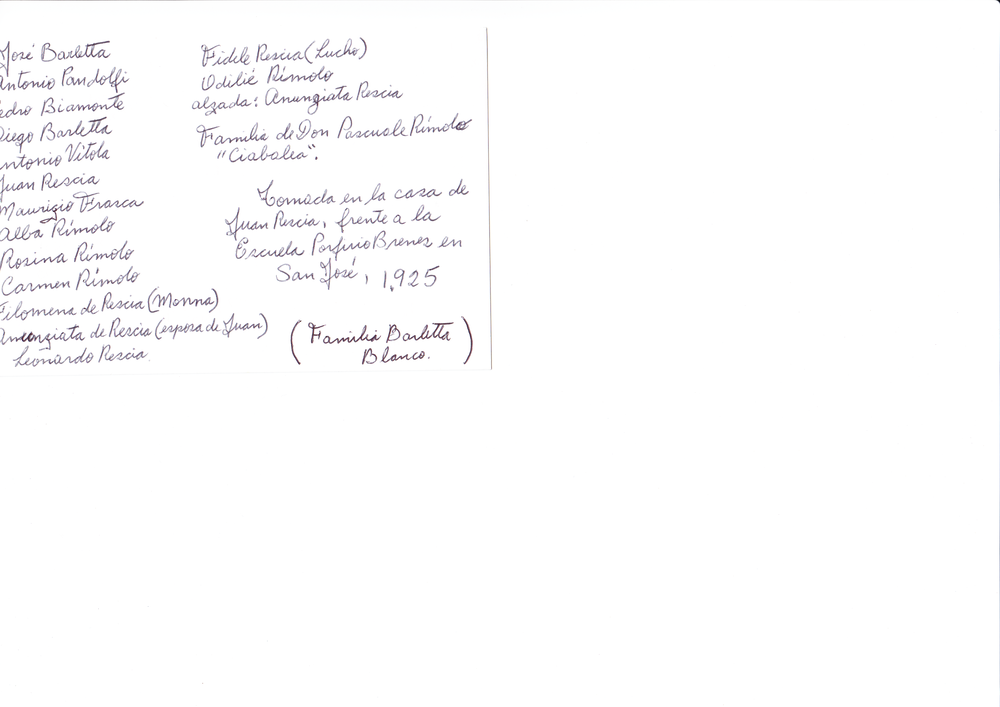 José Barletta
Antonio Pandolfi
Pedro Biamonte
Diego Barletta
Antonio Vitola
Juan Rescia
Maurizio Frasca
Alba Rímolo
Rosina Rímolo
Carmen Rímolo
Filomena de Rescia (Monna)
Anunziata de Rescia (esposa de Juan)
Leonardo Rescia.
Fidele Rescia (Lucho)
Odilié Rímolo
alzada: Anunziata Rescia
Familia de Don Pascuale Rímolo
"Ciabalea".
Tomada en la casa de
Juan Rescia, frente a la
Escuela Porfirio Brenes en
San José, 1.925
(Familia Barletta
Blanco.)